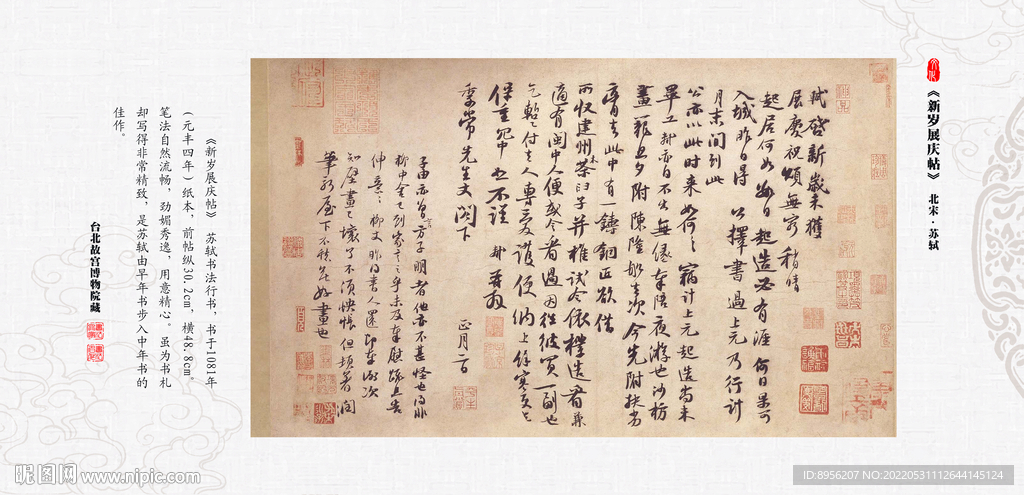 《新岁展庆帖》 北宋·苏轼
轼启新歲未獲
展慶祝頌無窮稍晴
起居何如數日起造必有涯何日果可
入城昨日得公擇書過上元乃行計
月末間到此
公亦以此時来如何何竊計上元起造尚未
畢工軾亦自不出無緣奉陪夜游也沙枋
畫籠旦夕附陳隆船去次今先附扶劣
膏去此中有一鑄銅匠欲借
所收建州木茶臼子并椎試令依樣造看兼
適有閩中人便或令看過因往彼買一副也
乞暫付去人專愛護便納上餘寒更乞
保重冗中恕不謹軾再拜
季常先生丈閣下
正月二日
子由亦曾言方子明者他亦不甚怪也得非
柳中舍已到家言之乎未及奉慰疏且告
伸意意柳丈昨得書人還即奉謝次
知壁畫已壞了不須怏悵但頓著潤
筆新屋下不愁無好畫也
《新岁展庆帖》 苏轼书法行书，书于1081年
(元丰四年) 纸本，前帖纵30.2cm，横48.8cm。
笔法自然流畅，劲媚秀逸，用意精心。虽为书札
却写得非常精致，是苏轼由早年书步入中年书的
佳作。
台北故宫博物院藏
昵图网 www.nipic.com
ID:8956207 NO:20220531112644145124